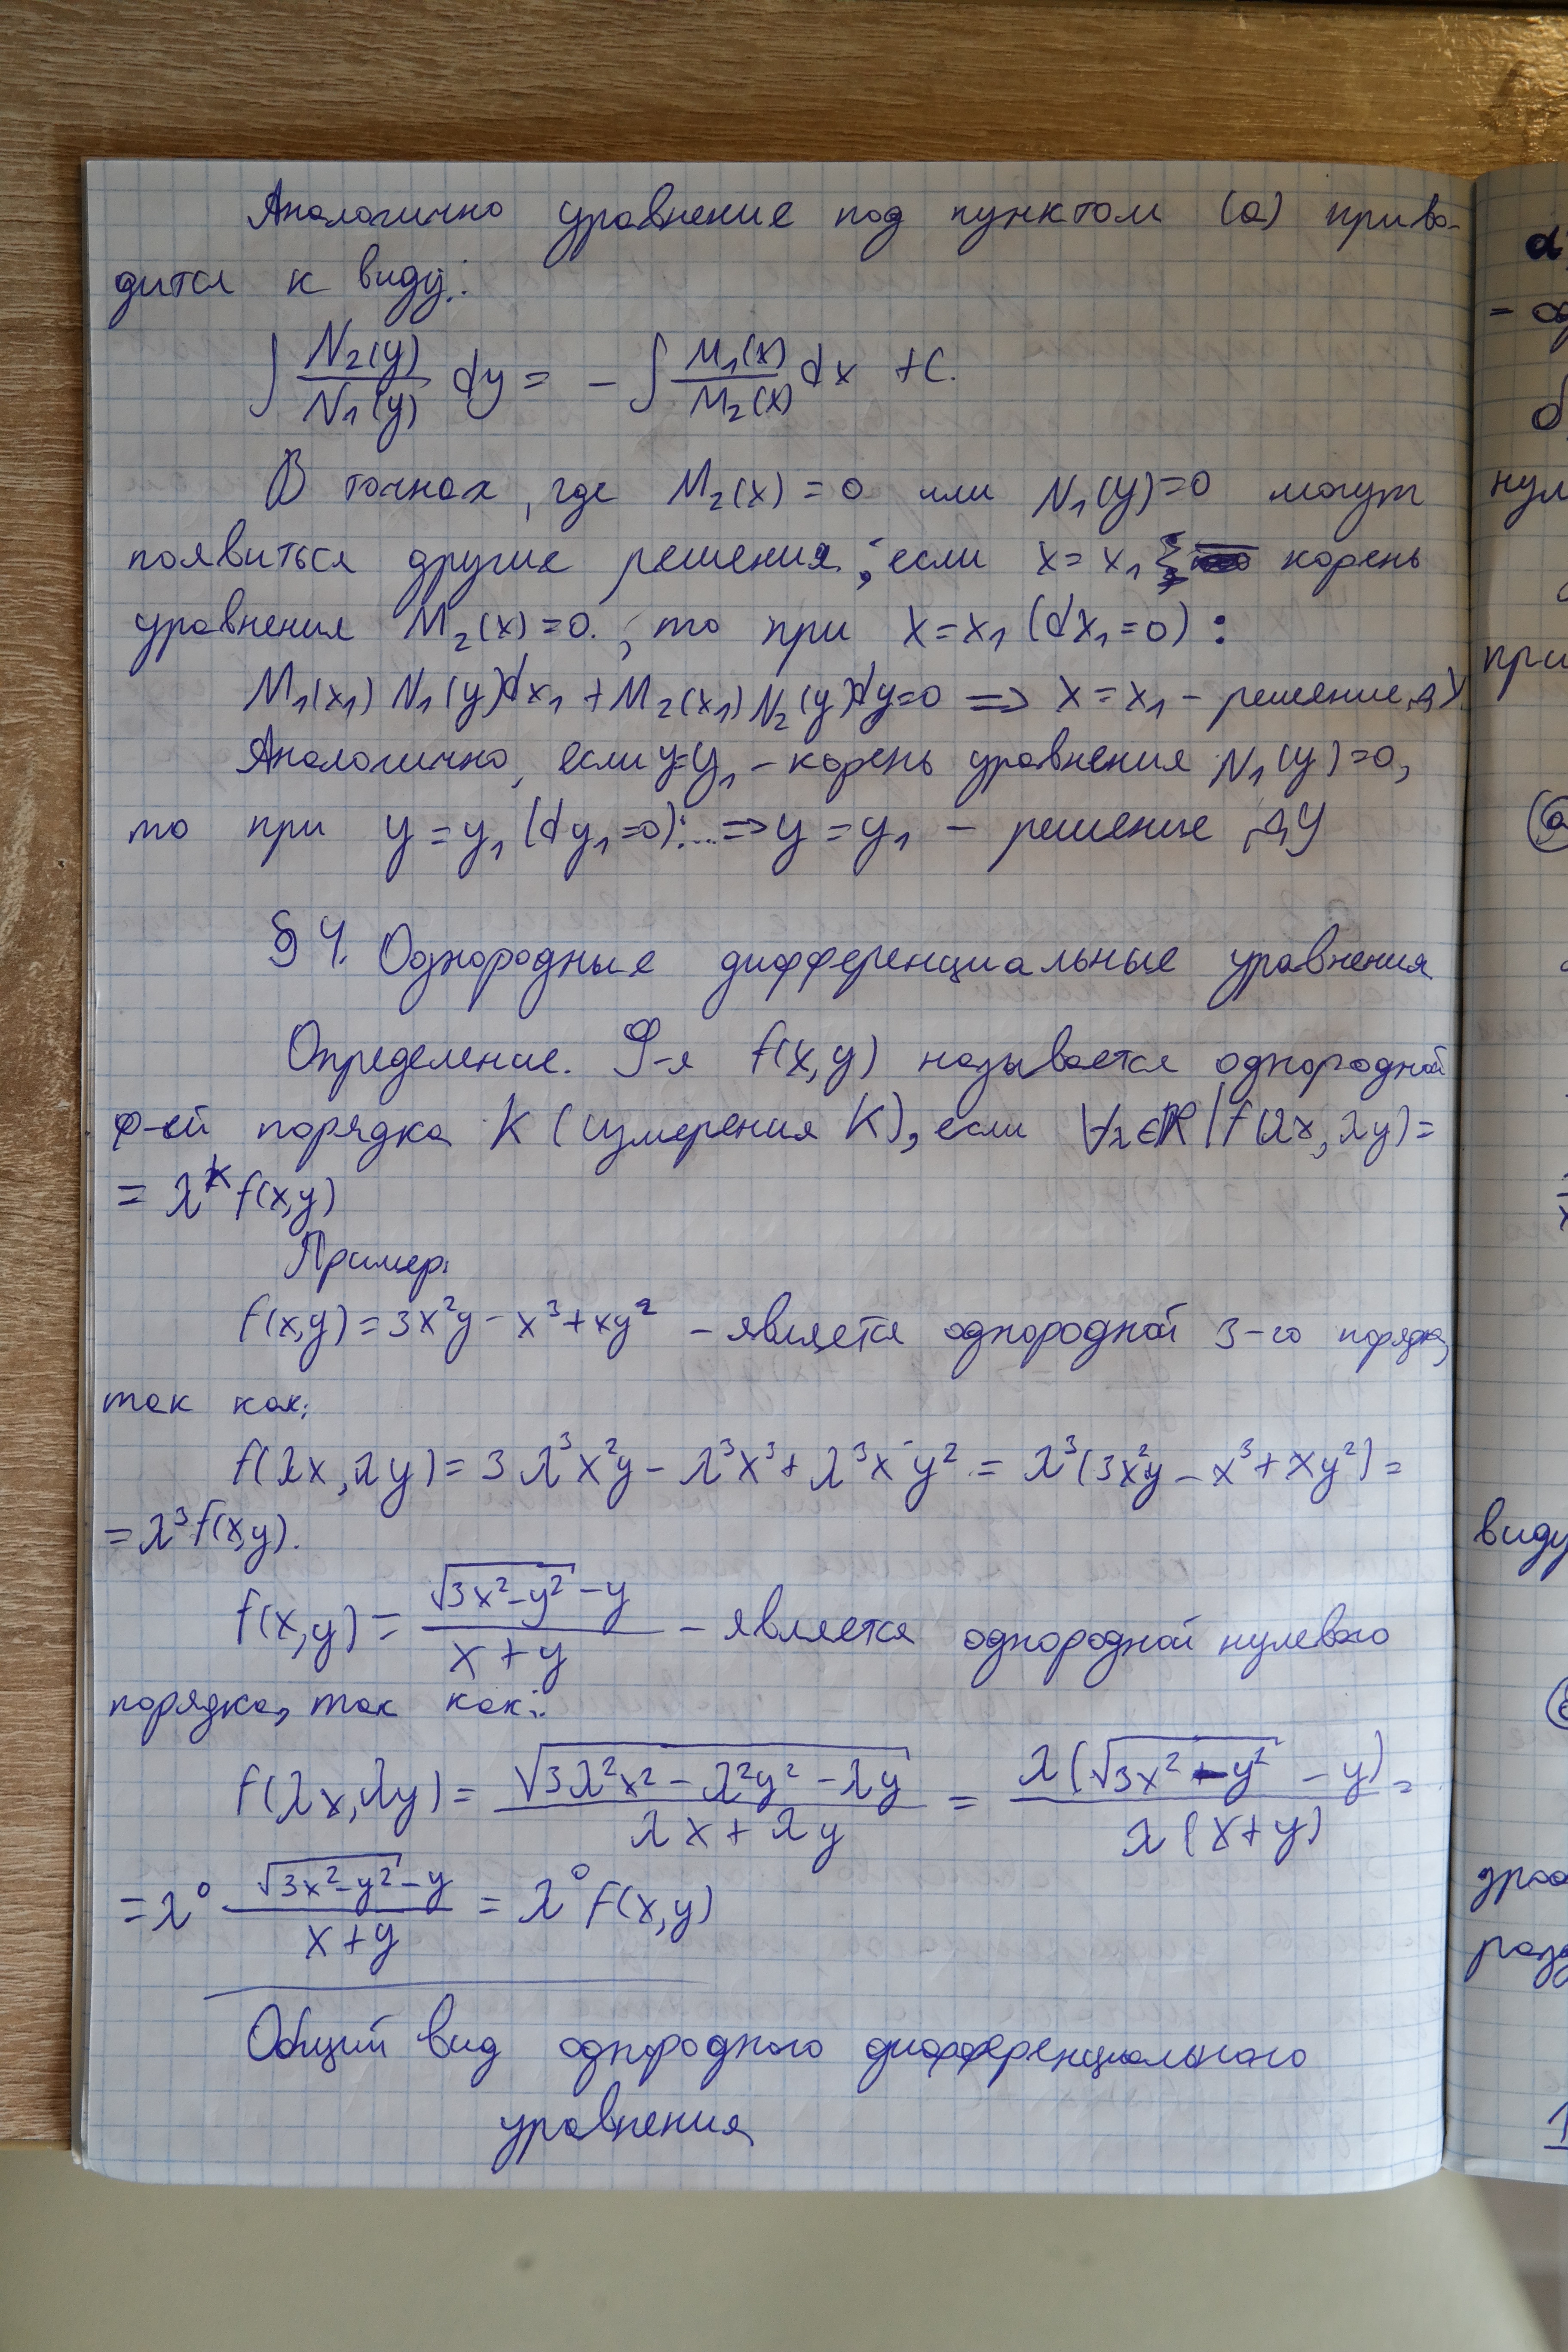 Аналогично уравнение под пунктом (а) приво-
дится к виду:
∫ N₂(y)/N₁(y) dy = - ∫ M₁(x)/M₂(x) dx + C.
В точках, где M₂(x) = 0 или N₁(y)=0 могут
появиться другие решения; если x = x₁ корень
уравнения M₂(x)=0, то при x=x₁ (dx₁=0):
M₁(x₁) N₁(y)dx₁ + M₂(x₁) N₂(y)dy=0 => x = x₁ - решение ДУ
Аналогично, если y=y₁ - корень уравнения N₁(y)=0,
то при y = y₁ (dy₁=0):...=> y = y₁ - решение ДУ
§ 4. Однородные дифференциальные уравнения
Определение. Ф-я f(x,y) называется однородной
ф-ей порядка K (измерения K), если ∀λ∈R | f(λx, λy) =
= λᵏ f(x,y)
Пример:
f(x,y) = 3x²y - x³ + xy² - является однородной 3-го порядка,
так как:
f(λx, λy) = 3λ³x²y - λ³x³ + λ³xy² = λ³(3x²y - x³ + xy²) =
= λ³f(x,y).
f(x,y) = (√(3x²-y²) - y)/(x + y) - является однородной нулевого
порядка, так как:
f(λx, λy) = √(3λ²x² - λ²y² - λy)/(λx + λy) = λ(√(3x² - y²) - y)/(λ(x+y)) =
= λ⁰ (√(3x²-y²) - y)/(x + y) = λ⁰ f(x,y)
Общий вид однородного дифференциального
уравнения
d
нул
при
виду